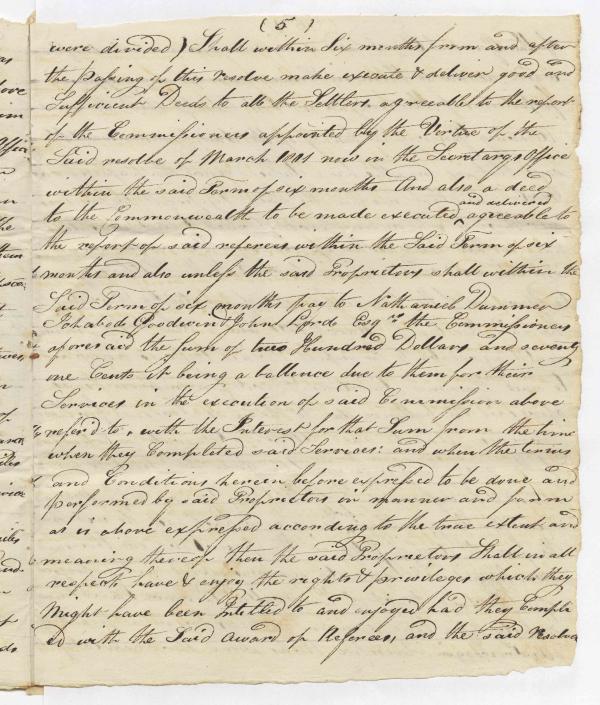 (5)
were divided) Shall within Six months from and after
the passing of this resolve make execute & deliver good and
Sufficient Deeds to all the Settlers agreeable to the report
of the Commissioners appointed by the Virtue of the
Said resolve of March 1801 now in the Secretarys Office
within the said Term of six months And also a deed
to the Commonwealth to be made executed and delivered agreeable to
the report of said referees within the Said Term of six
months and also unless the said Proprietors shall within the
Said Term of six months pay to Nathaniel Dummer
Ichabod Goodwin & John Lord Esqrs the Commissioners
aforesaid the Sum of two Hundred Dollars and seventy
one Cents it being a ballence due to them for their
Services in the execution of said Commission above
refer'd to, with the Interest for that Sum from the time
when they Completed said Services: and when the terms
and Conditions herein before expressed to be done and
performed by said Proprietors in manner and form
as is above expressed according to the true extent and
meaning thereof then the said Proprietors Shall in all
respects have & enjoy the rights & privileges which they
might have been Intitled to and enjoyed had they Compli
ed with the Said award of Referees, and the said resolve